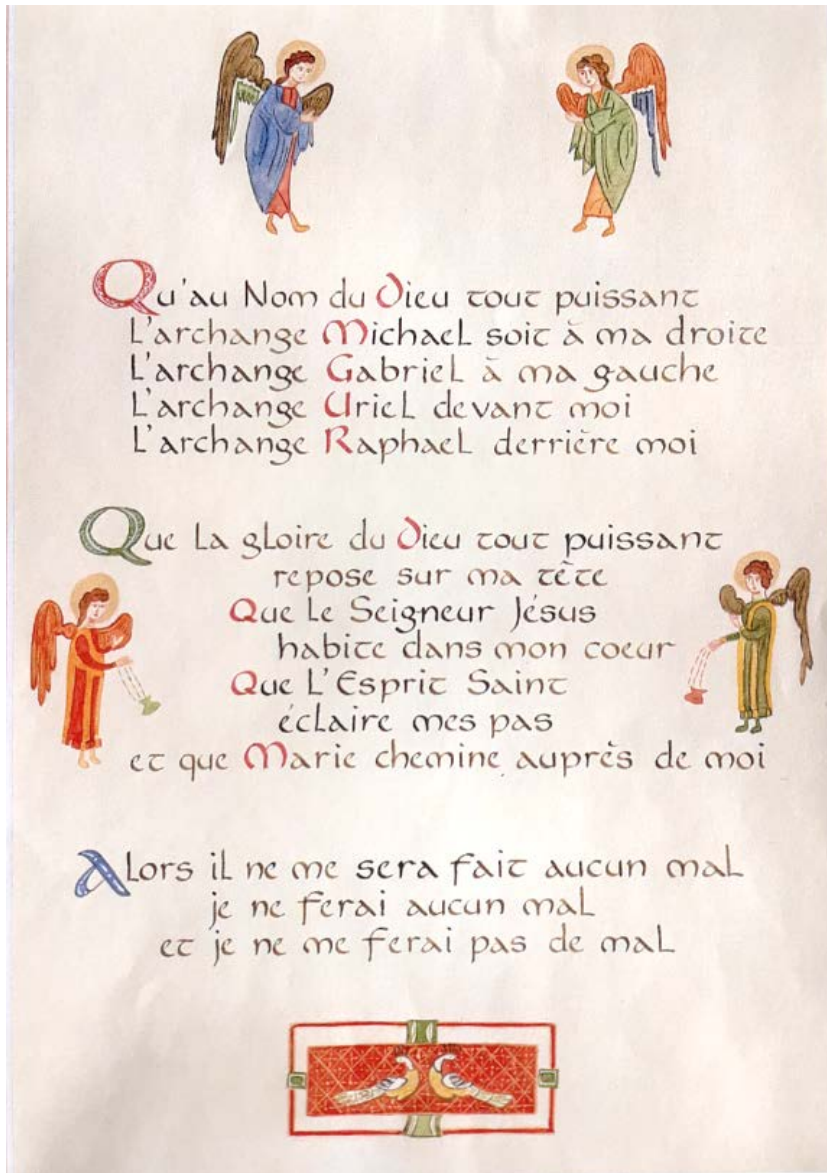 Qu'au Nom du Dieu tout puissant
L'archange Michael soit à ma droite
L'archange Gabriel à ma gauche
L'archange Uriel devant moi
L'archange Raphael derrière moi
Que la gloire du Dieu tout puissant
repose sur ma tête
Que le Seigneur Jésus
habite dans mon coeur
Que L'Esprit Saint
éclaire mes pas
et que Marie chemine auprès de moi
Alors il ne me sera fait aucun mal
je ne ferai aucun mal
et je ne me ferai pas de mal